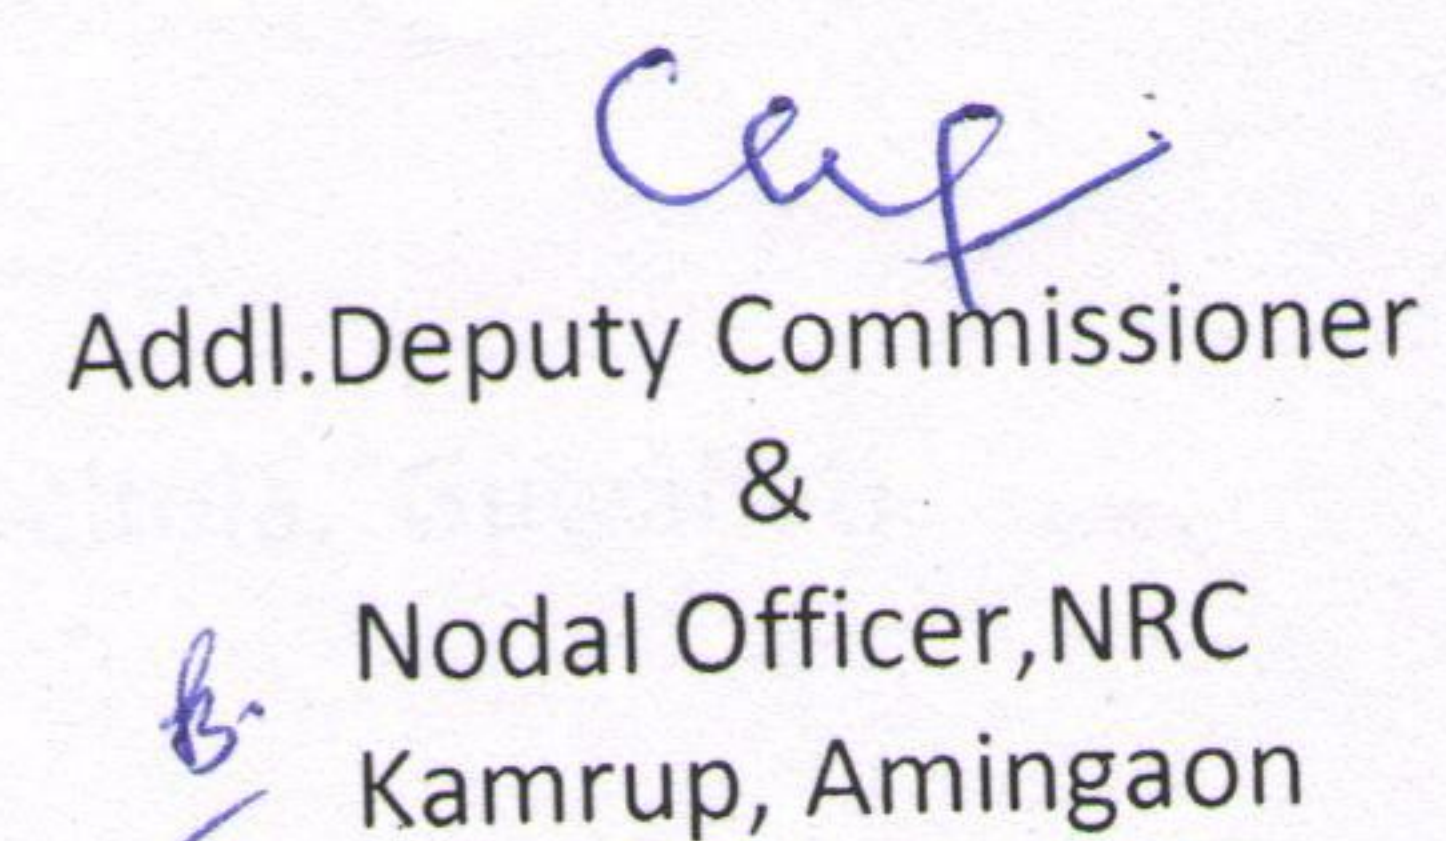 Addl.Deputy Commissioner
&
Nodal Officer,NRC
Kamrup, Amingaon